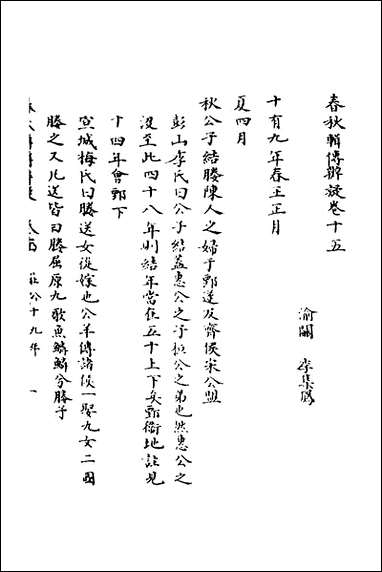 春秋輯傳辨疑卷十五
渝關 李集鳳
十有九年春王正月
夏四月
秋公子結媵陳人之婦于鄄遂及齊侯宋公盟
彭山季氏曰公子結蓋惠公之子桓公之弟也然惠公之
沒至此四十八年則結年當在五十上下矣鄄衛地註見
十四年會鄄下
宣城梅氏曰媵送女從嫁也公羊傳諸侯一娶九女二國
媵之又凡送皆曰媵屈原九歌魚鱗鱗兮媵予
春秋輯傳辨疑 卷十五 莊公十九年 一